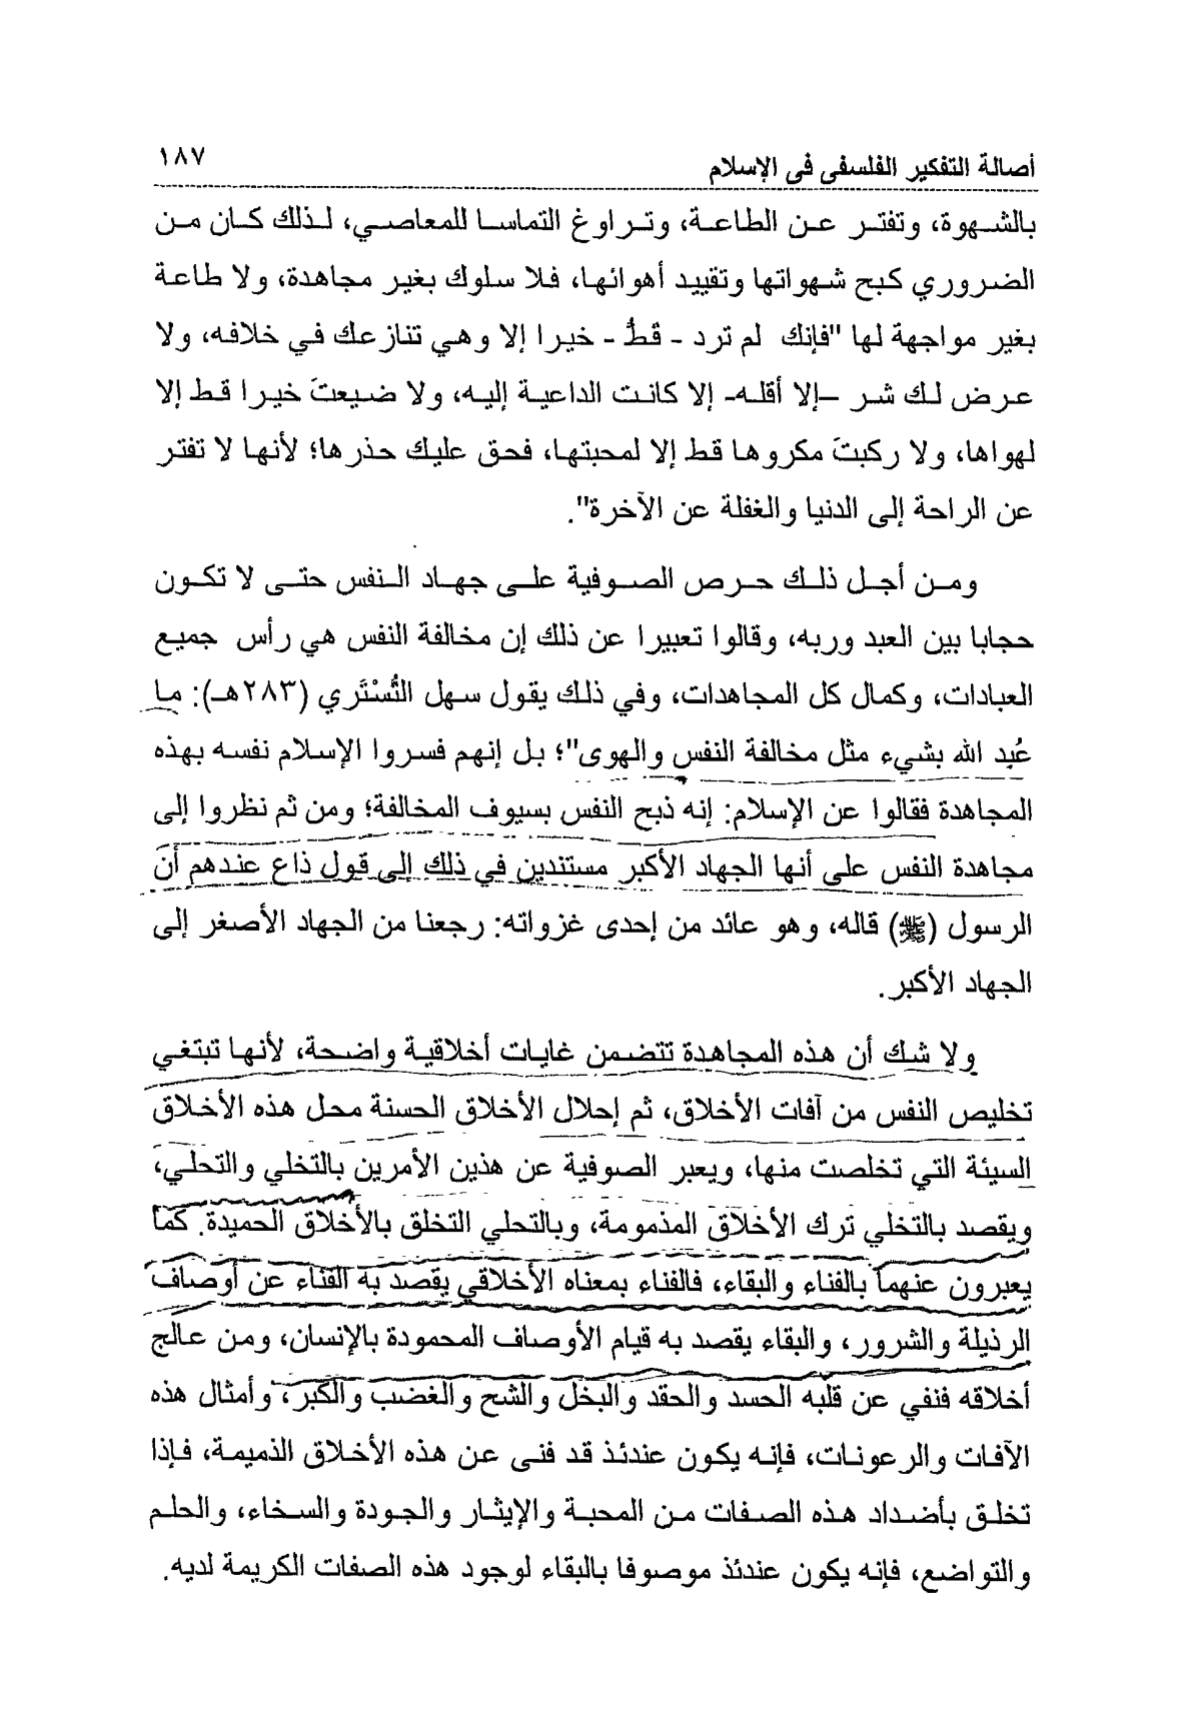 أصالة التفكير الفلسفى فى الإسلام ١٨٧
بالشهوة، وتفتر عن الطاعة، وتراوغ التماسا للمعاصي، لذلك كان من
الضروري كبح شهواتها وتقييد أهوائها، فلا سلوك بغير مجاهدة، ولا طاعة
بغير مواجهة لها "فإنك لم ترد - قطُّ - خيرا إلا وهي تنازعك في خلافه، ولا
عرض لك شر –إلا أقله- إلا كانت الداعية إليه، ولا ضيعتَ خيرا قط إلا
لهواها، ولا ركبتَ مكروها قط إلا لمحبتها، فحق عليك حذرها؛ لأنها لا تفتر
عن الراحة إلى الدنيا والغفلة عن الآخرة".
ومن أجل ذلك حرص الصوفية على جهاد النفس حتى لا تكون
حجابا بين العبد وربه، وقالوا تعبيرا عن ذلك إن مخالفة النفس هي رأس جميع
العبادات، وكمال كل المجاهدات، وفي ذلك يقول سهل التُّسْتَري (٢٨٣هـ): ما
عُبِد الله بشيء مثل مخالفة النفس والهوى"؛ بل إنهم فسروا الإسلام نفسه بهذه
المجاهدة فقالوا عن الإسلام: إنه ذبح النفس بسيوف المخالفة؛ ومن ثم نظروا إلى
مجاهدة النفس على أنها الجهاد الأكبر مستندين في ذلك إلى قول ذاع عندهم أن
الرسول (ﷺ) قاله، وهو عائد من إحدى غزواته: رجعنا من الجهاد الأصغر إلى
الجهاد الأكبر.
ولا شك أن هذه المجاهدة تتضمن غايات أخلاقية واضحة، لأنها تبتغي
تخليص النفس من آفات الأخلاق، ثم إحلال الأخلاق الحسنة محل هذه الأخلاق
السيئة التي تخلصت منها، ويعبر الصوفية عن هذين الأمرين بالتخلي والتحلي،
ويقصد بالتخلي ترك الأخلاق المذمومة، وبالتحلي التخلق بالأخلاق الحميدة. كما
يعبرون عنهما بالفناء والبقاء، فالفناء بمعناه الأخلاقي يقصد به الفناء عن أوصاف
الرذيلة والشرور، والبقاء يقصد به قيام الأوصاف المحمودة بالإنسان، ومن عالج
أخلاقه فنفي عن قلبه الحسد والحقد والبخل والشح والغضب والكبر، وأمثال هذه
الآفات والرعونات، فإنه يكون عندئذ قد فنى عن هذه الأخلاق الذميمة، فإذا
تخلق بأضداد هذه الصفات من المحبة والإيثار والجودة والسخاء، والحلم
والتواضع، فإنه يكون عندئذ موصوفا بالبقاء لوجود هذه الصفات الكريمة لديه.